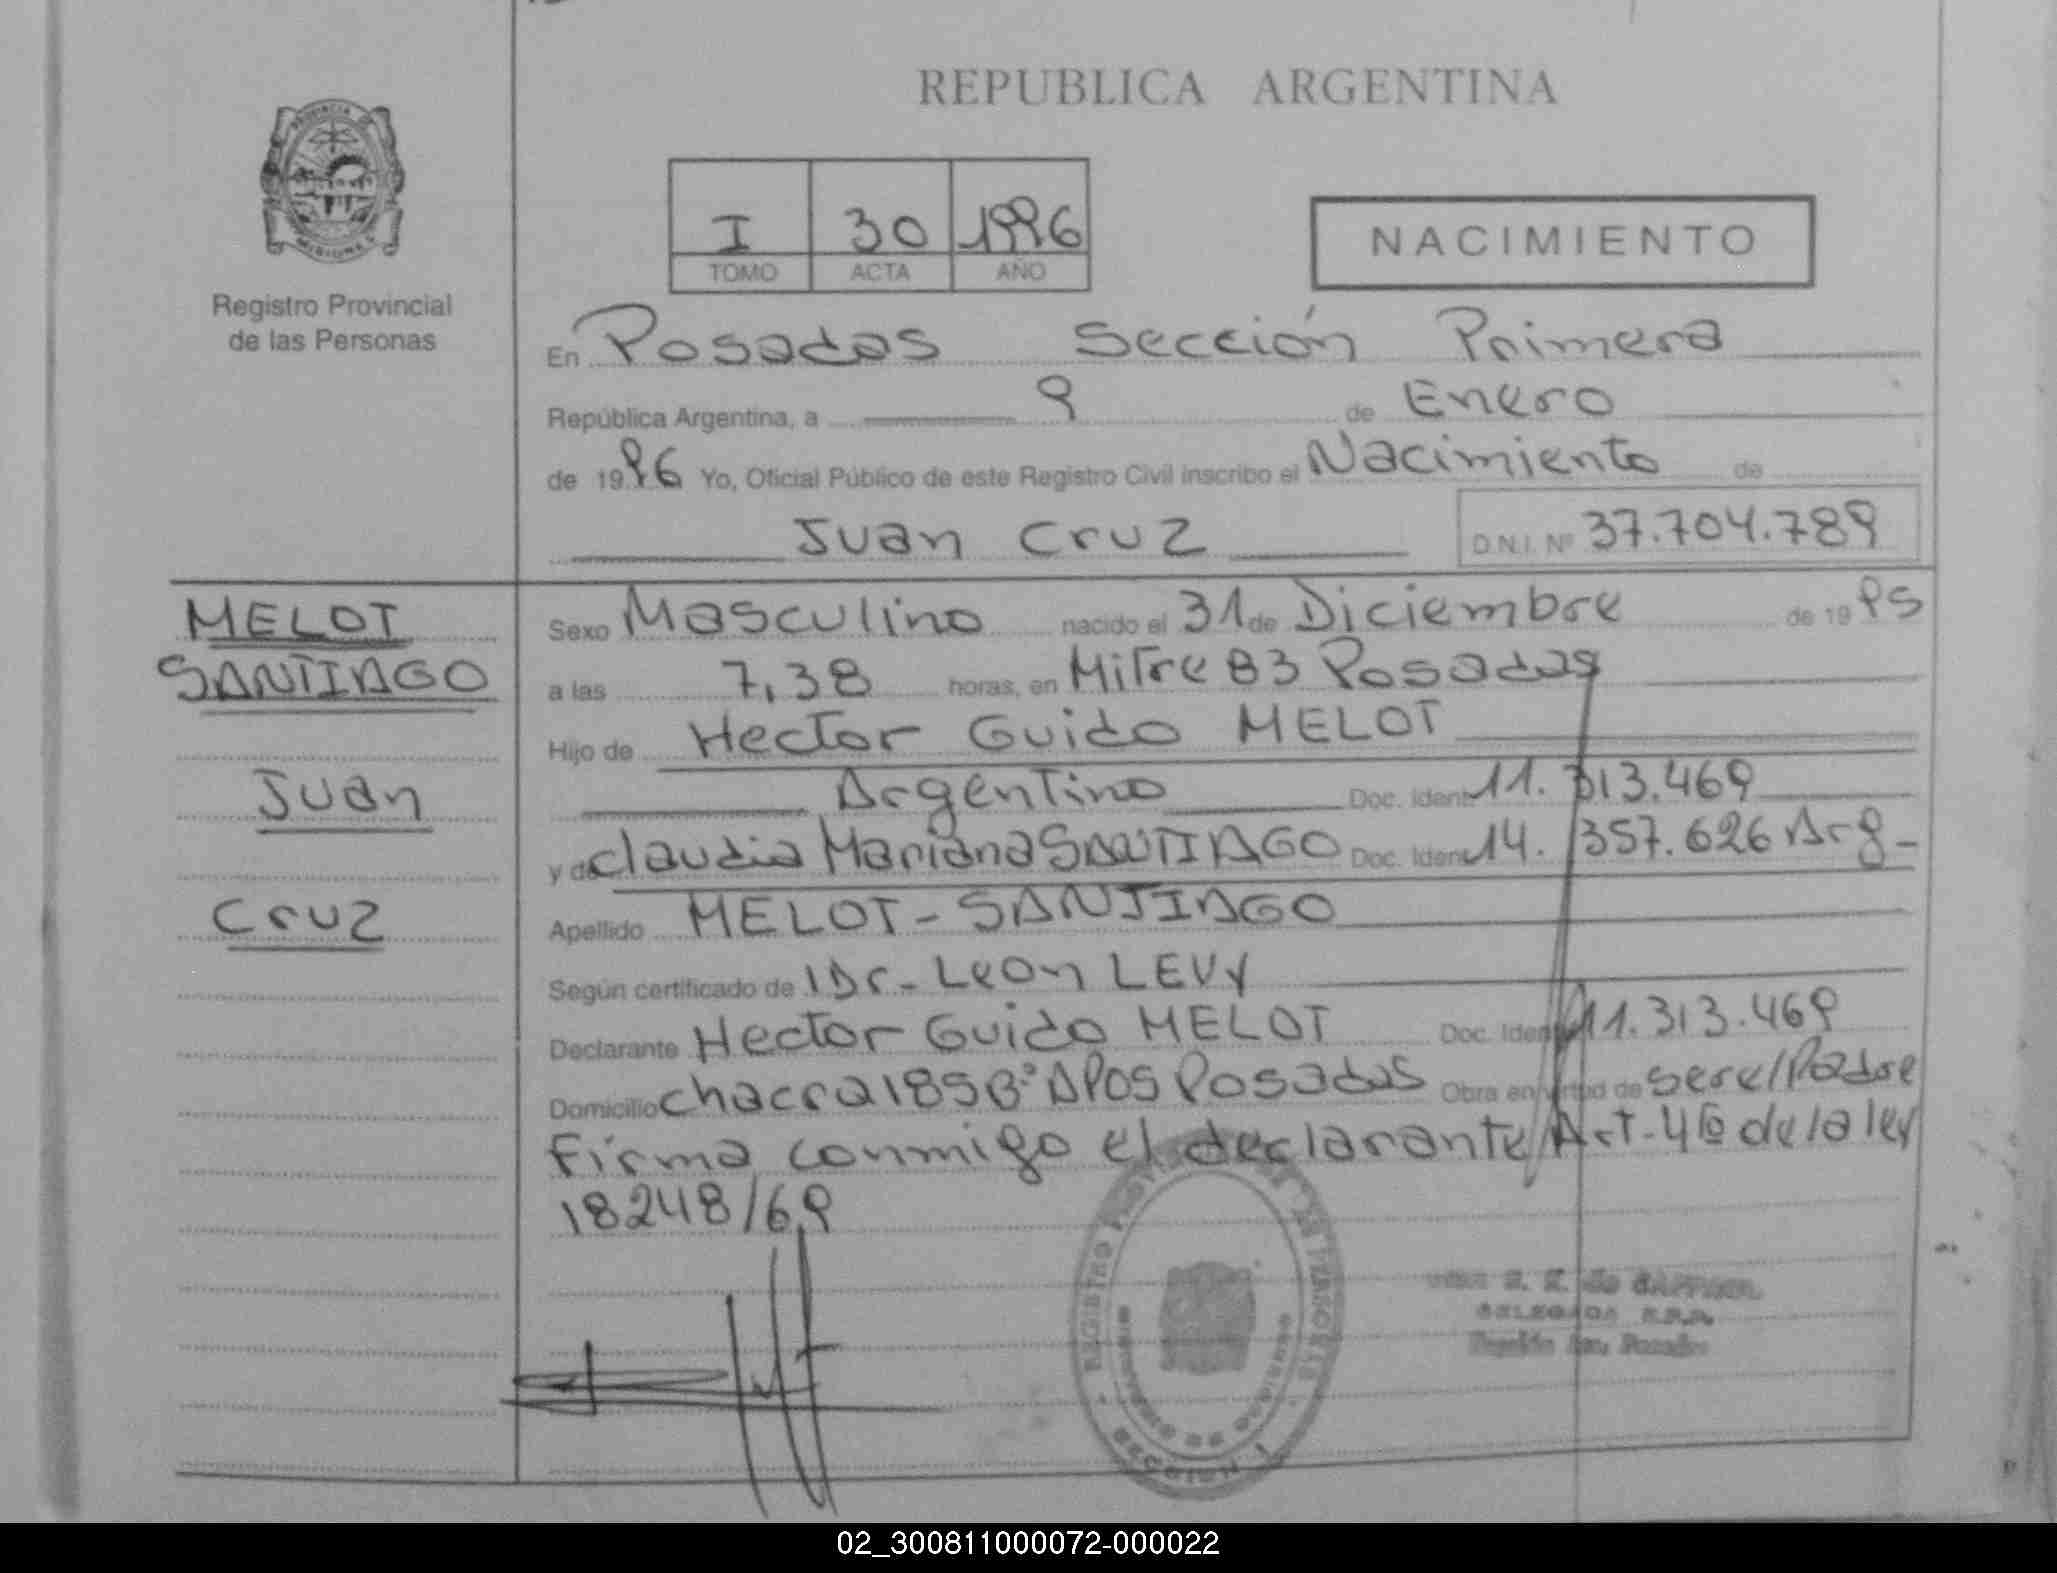 REPUBLICA ARGENTINA
PROVINCIA DE
MISIONES
Registro Provincial
de las Personas
I 30 1996
TOMO ACTA AÑO
NACIMIENTO
En Posadas Sección Primera
República Argentina, a 9 de Enero
de 1996 Yo, Oficial Público de este Registro Civil inscribo el Nacimiento de
Juan Cruz D.N.I. Nº 37.704.789
MELOT
SANTIAGO
Juan
Cruz
Sexo Masculino nacido el 31 de Diciembre de 1995
a las 7,38 horas, en Mitre 83 Posadas
Hijo de Hector Guido MELOT
Argentino Doc. Ident. 11.313.469
y de Claudia Mariana SANTIAGO Doc. Ident. 14.357.626 Arg-
Apellido MELOT-SANTIAGO
Según certificado de Dr. Leon LEVY
Declarante Hector Guido MELOT Doc. Ident. 11.313.469
Domicilio chacra 185 Bº APOS Posadas Obra en virtud de ser el Padre
Firma conmigo el declarante Art. 4to de la ley
18248/69
REGISTRO DE LAS PERSONAS
SECCION 1
DELEGADA R.P.P.
Posadas
02_300811000072-000022